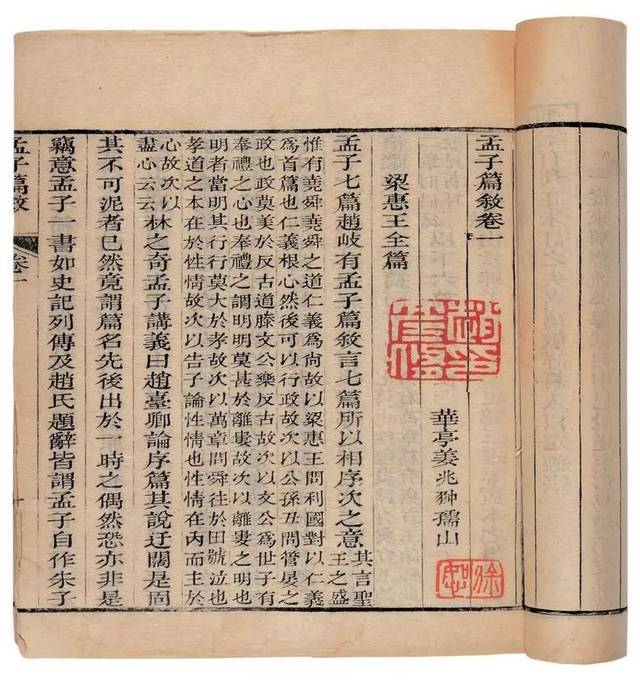 孟子篇敘卷一
華亭姜兆翀孺山
徐恕
梁惠王全篇
孟子七篇趙岐有孟子篇敘言七篇所以相序次之意其言聖
王之盛
惟有堯舜之道仁義爲尙故以梁惠王問利國對以仁義
爲首篇也仁義根心然後可以行政故次以公孫丑問管晏之
政也政莫美於反古道滕文公樂反古故次以文公爲世子有
奉禮之心也奉禮之謂明明莫甚於離婁故次以離婁之明也
明者當明其行行莫大於孝故次以萬章問舜往於田號泣也
孝道之本在於性情故次以告子論性情也性情在內而主於
心故次以
盡心云云
林之奇孟子講義曰趙臺卿論序篇其說迂闊是固
其不可泥者已然竟謂篇名先後出於一時之偶然恐亦非是
竊意孟子一書如史記列傳及趙氏題辭皆謂孟子自作朱子
孟子篇敘
卷一